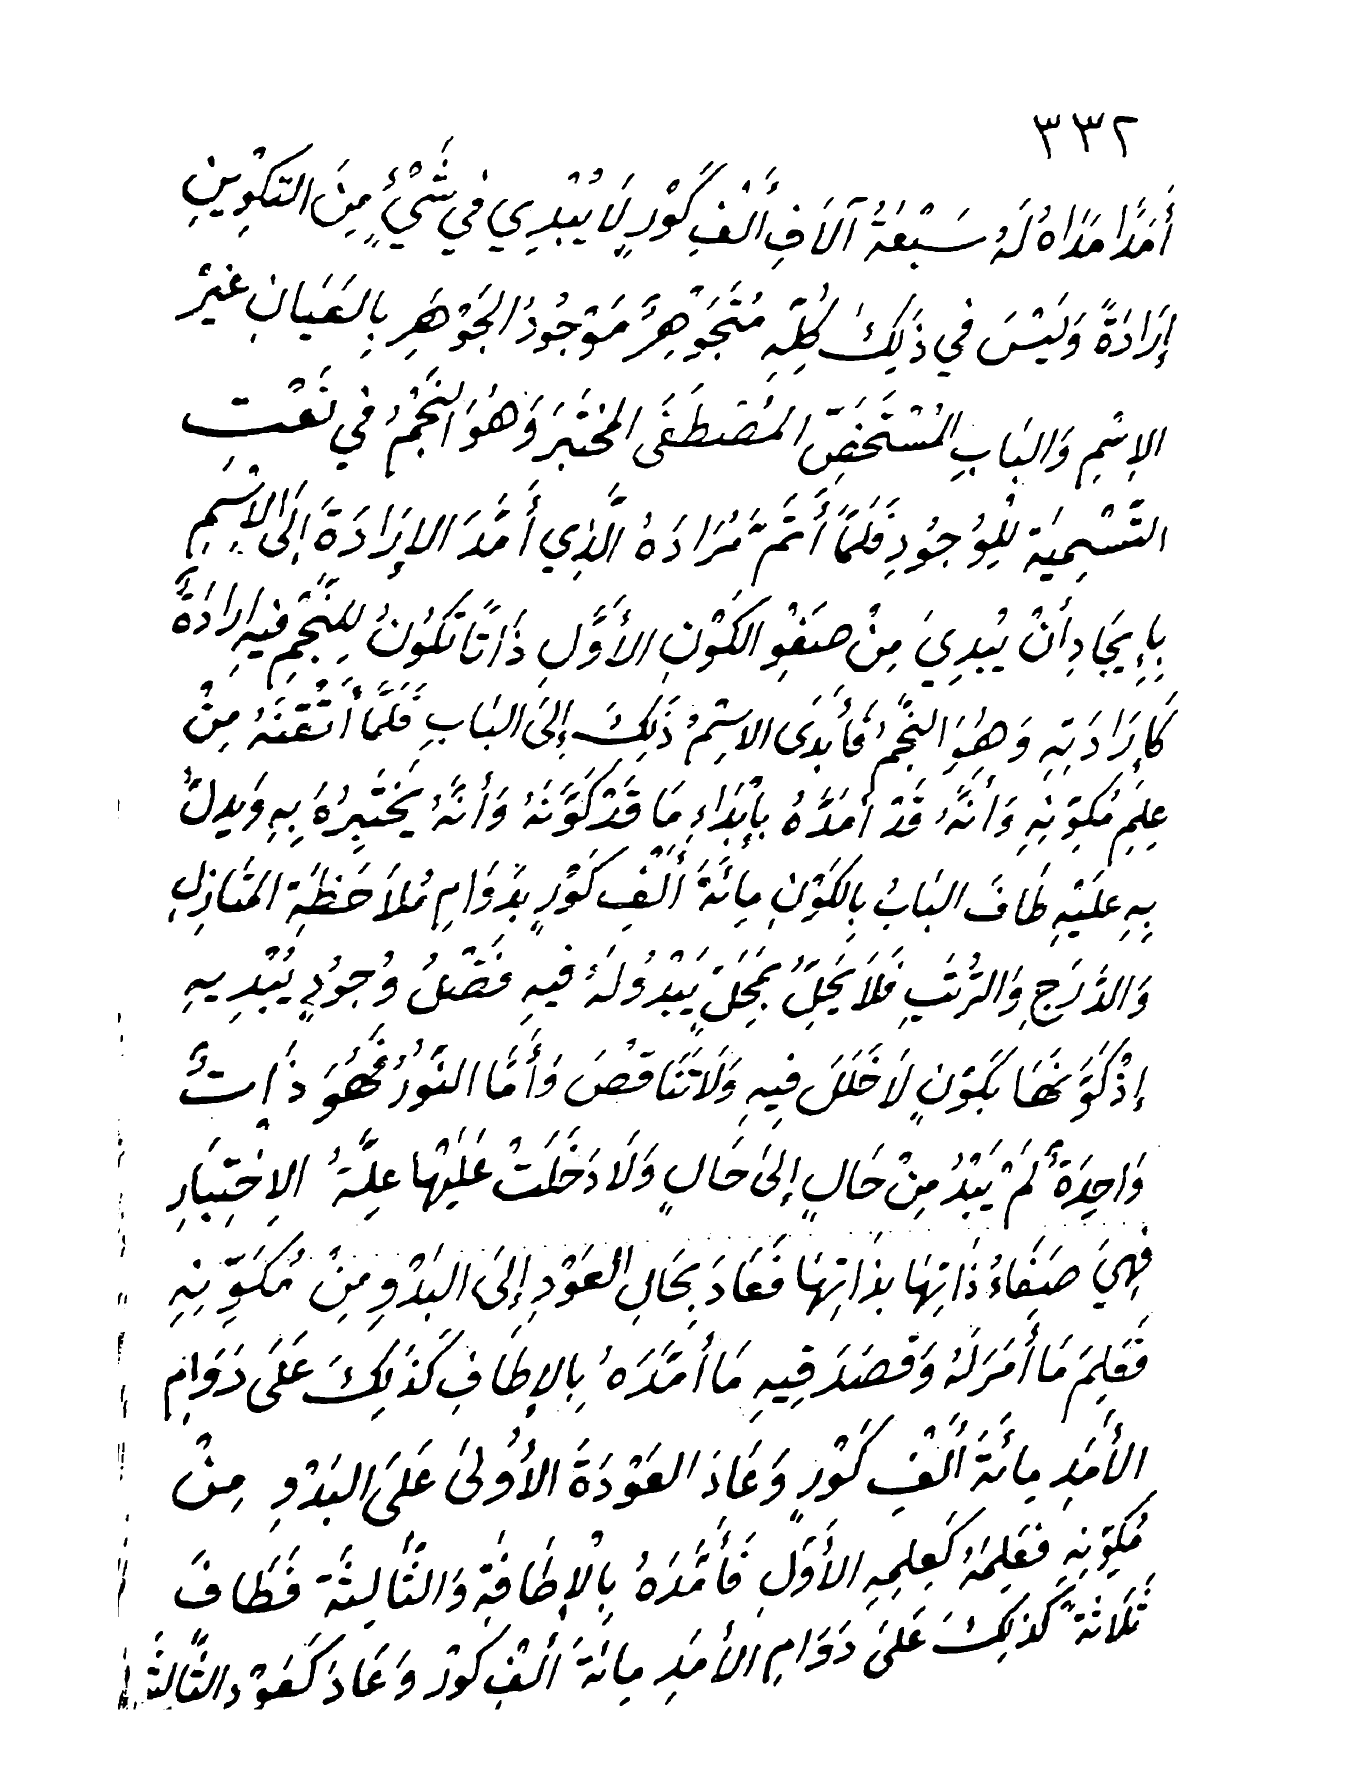 ٣٣٢
أَمَدًا مَدَاهُ لَهُ سَبْعَةُ آلَافِ أَلْفِ كَوْرٍ لَا يُبْدِي فِي شَيْءٍ مِنَ التَكْوِينِ
إِرَادَةً وَلَيْسَ فِي ذَلِكَ كُلِّهِ مُتَجَوْهِرٌ مَوْجُودُ الجَوْهَرِ بِالعَيَانِ غَيْرُ
الاِسْمِ وَالبَابِ المُسْتَخَصِّ المُصْطَفَى المُخْتَبَرِ وَهُوَ النَجْمُ فِي نَعْتِ
التَّسْمِيَةِ لِلْوُجُودِ فَلَمَّا أَتَمَّ مُرَادَهُ الَّذِي أَمَّدَ الإِرَادَةَ إِلَى الاِسْمِ
بِإِيجَادِ أَنْ يُبْدِيَ مِنْ صَفْوِ الكَوْنِ الأَوَّلِ ذَاتًا تَكُونُ لِلنَّجْمِ فِيهِ إِرَادَةٌ
كَإِرَادَتِهِ وَهُوَ النَّجْمُ فَأَبْدَى الاِسْمُ ذَلِكَ إِلَى البَابِ فَلَمَّا أَتْقَنَهُ مِنْ
عِلْمِ مُكَوِّنِهِ وَأَنَّهُ قَدْ أَمَدَّهُ بِإِبْدَاءِ مَا قَدْ كَوَّنَهُ وَأَنَّهُ يَخْتَبِرُهُ بِهِ وَيَدِلُّ
بِهِ عَلَيْهِ طَافَ البَابُ بِالكَوْنِ مِائَةَ أَلْفِ كَوْرٍ بِدَوَامِ مُلَاحَظَةِ المَنَازِلِ
وَالدَّرَجِ وَالرُّتَبِ فَلَا يَحِلُّ بِمَحَلٍّ يَبْدُو لَهُ فِيهِ فَضْلُ وُجُودٍ يُبْدِيهِ
إِذْ كَوَّنَهَا بِكَوْنٍ لَا خَلَلَ فِيهِ وَلَا تَنَاقُصَ وَأَمَّا النُّورُ فَهُوَ ذَاتٌ
وَاحِدَةٌ لَمْ يَبْدُ مِنْ حَالٍ إِلَى حَالٍ وَلَا دَخَلَتْ عَلَيْهَا عِلَّةُ الاِخْتِبَارِ
فَهِيَ صَفَاءُ ذَاتِهَا بِذَاتِهَا فَعَادَ بِحَالِ العَوْدِ إِلَى البَدْوِ مِنْ مُكَوِّنِهِ
فَعَلِمَ مَا أَمَرَ لَهُ وَقَصَدَ فِيهِ مَا أَمَّدَهُ بِالإِطَافِ كَذَلِكَ عَلَى دَوَامِ
الأَمَدِ مِائَةَ أَلْفِ كَوْرٍ وَعَادَ العَوْدَةَ الأُولَى عَلَى البَدْوِ مِنْ
مُكَوِّنِهِ فَعَلِمَهُ كَعِلْمِهِ الأَوَّلِ فَأَمَّدَهُ بِالْإِطَافَةِ وَالثَّالِثَةَ فَطَافَ
ثَلَاثَةً كَذَلِكَ عَلَى دَوَامِ الأَمَدِ مِائَةَ أَلْفِ كَوْرٍ وَعَادَ كَعَوْدِ الثَّالِثَةِ